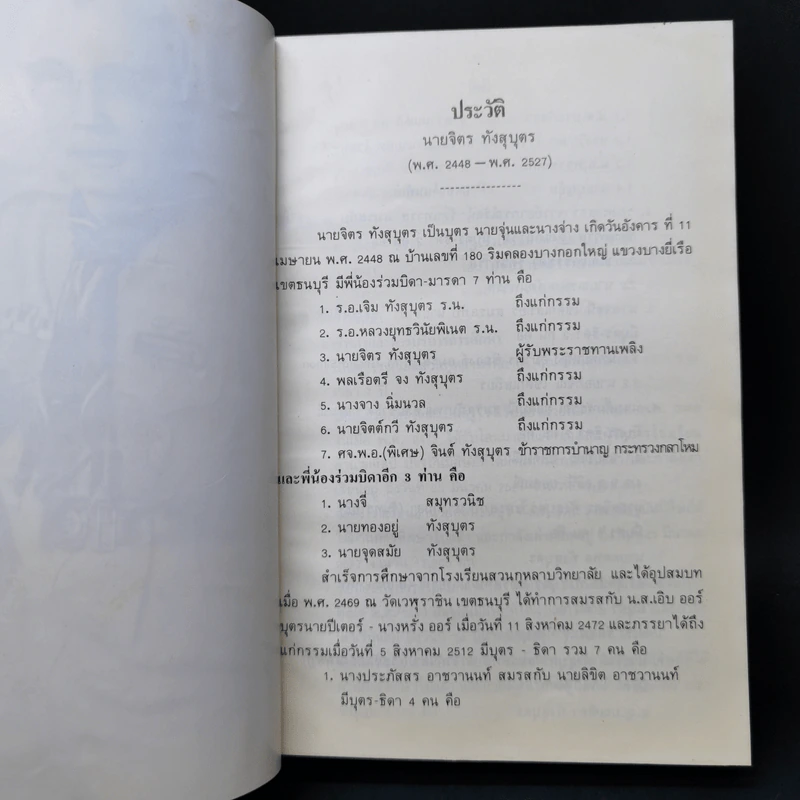 ประวัติ
นายจิตร ทังสุบุตร
(พ.ศ. 2448 — พ.ศ. 2527)
----------------
นายจิตร ทังสุบุตร เป็นบุตร นายจุ่นและนางจ่าง เกิดวันอังคาร ที่ 11
เมษายน พ.ศ. 2448 ณ บ้านเลขที่ 180 ริมคลองบางกอกใหญ่ แขวงบางยี่เรือ
เขตธนบุรี มีพี่น้องร่วมบิดา-มารดา 7 ท่าน คือ
1. ร.อ.เจิม ทังสุบุตร ร.น. ถึงแก่กรรม
2. ร.อ.หลวงยุทธวินัยพิเนต ร.น. ถึงแก่กรรม
3. นายจิตร ทังสุบุตร ผู้รับพระราชทานเพลิง
4. พลเรือตรี จง ทังสุบุตร ถึงแก่กรรม
5. นางจาง นิ่มนวล ถึงแก่กรรม
6. นายจิตต์กวี ทังสุบุตร ถึงแก่กรรม
7. ศจ.พ.อ.(พิเศษ) จินต์ ทังสุบุตร ข้าราชการบำนาญ กระทรวงกลาโหม
และพี่น้องร่วมบิดาอีก 3 ท่าน คือ
1. นางจี่ สมุทรวนิช
2. นายทองอยู่ ทังสุบุตร
3. นายจุดสมัย ทังสุบุตร
สำเร็จการศึกษาจากโรงเรียนสวนกุหลาบวิทยาลัย และได้อุปสมบท
เมื่อ พ.ศ. 2469 ณ วัดเวฬุราชิน เขตธนบุรี ได้ทำการสมรสกับ น.ส.เอิบ ออร์
บุตรนายปีเตอร์ - นางหรั่ง ออร์ เมื่อวันที่ 11 สิงหาคม 2472 และภรรยาได้ถึง
แก่กรรมเมื่อวันที่ 5 สิงหาคม 2512 มีบุตร - ธิดา รวม 7 คน คือ
1. นางประภัสสร อาชวานนท์ สมรสกับ นายลิขิต อาชวานนท์
มีบุตร-ธิดา 4 คน คือ